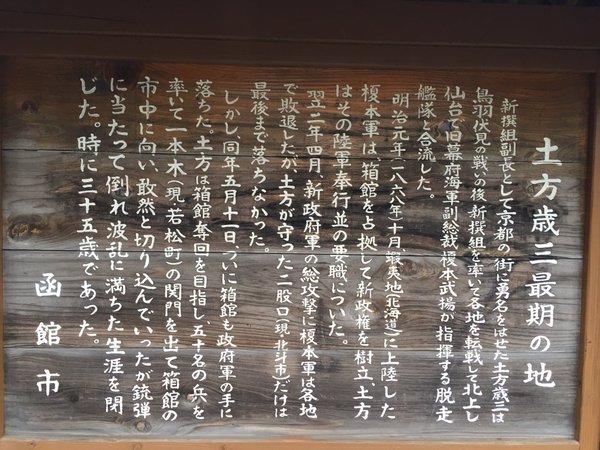 土方歳三最期の地
新撰組副長として京都の街に勇名をはせた土方歳三は
鳥羽伏見の戦いの後、新撰組を率い各地を転戦して北上し
仙台で旧幕府海軍副総裁榎本武揚が指揮する脱走
艦隊と合流した。
明治元年(一八六八年)十月蝦夷地(北海道)に上陸した
榎本軍は、箱館を占拠して新政権を樹立、土方
はその陸軍奉行並の要職についた。
翌二年四月、新政府軍の総攻撃に榎本軍は各地
で敗退したが、土方が守った二股口(現・北斗市)だけは
最後まで落ちなかった。
しかし、同年五月十一日、ついに箱館も政府軍の手に
落ちた。土方は箱館奪回を目指し、五十名の兵を
率いて一本木(現・若松町)の関門を出て箱館の
市中に向い、敢然と切り込んでいったが、銃弾
に当たって倒れ、波乱に満ちた生涯を閉
じた。時に三十五歳であった。
函館市